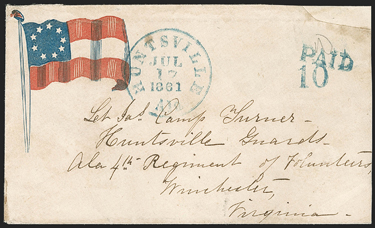 HUNTSVILLE
JUL
17
1861
PAID
10
Camp Turner
Huntsville Guards
Ala 4th Regiment of Volunteers,
Winchester,
Virginia